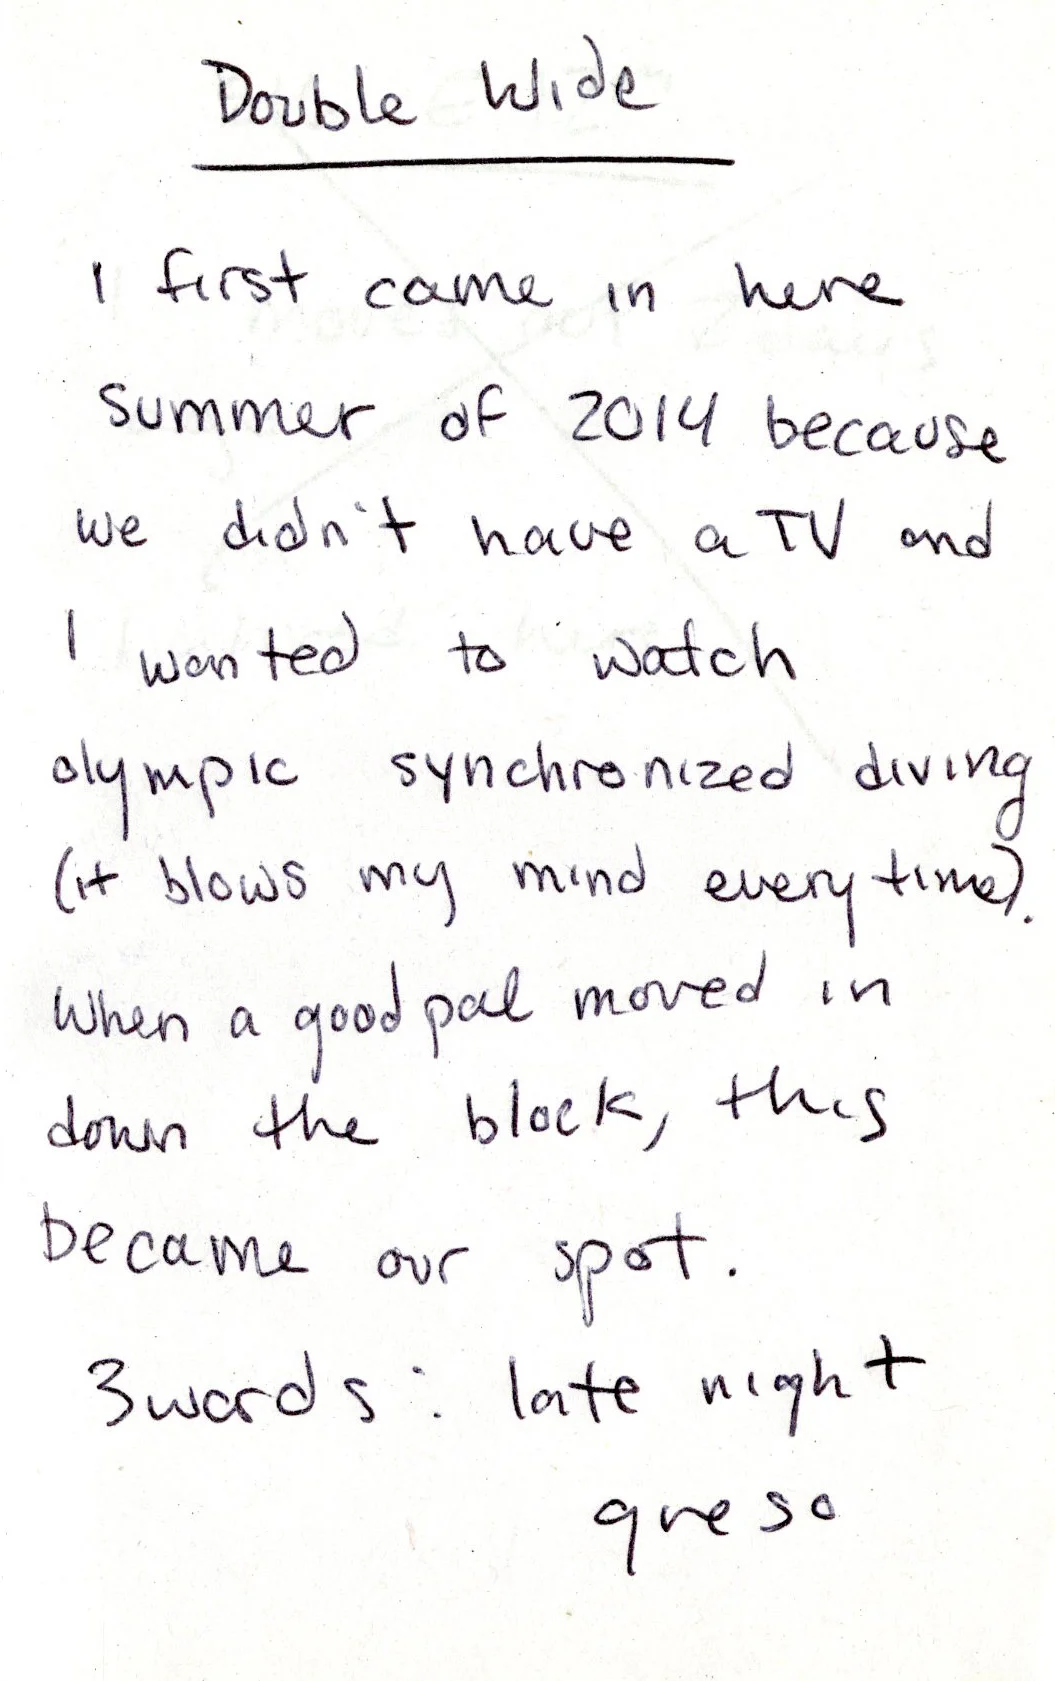 Double Wide
I first came in here
summer of 2014 because
we didn't have a TV and
I wanted to watch
olympic synchronized diving
(it blows my mind every time).
When a good pal moved in
down the block, this
became our spot.
3 words: late night
queso